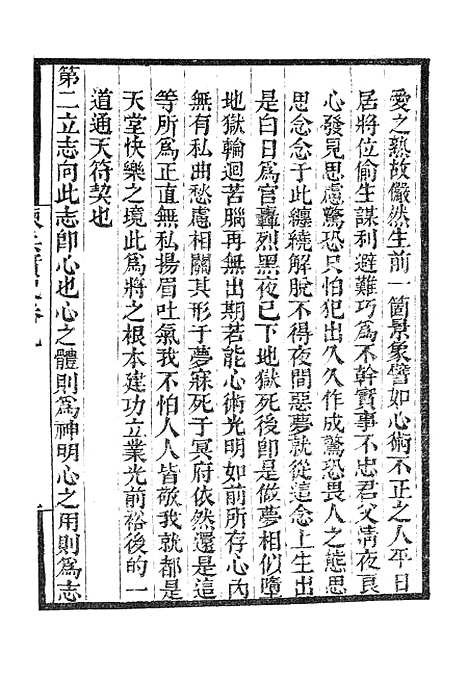 愛之熟故儼然生前一箇景象譬如心術不正之人平日
居將位偷生謀利避難巧為不幹實事不忠君父清夜良
心發見思慮驚恐只怕犯出久久作成驚恐畏人之態思
思念念于此纏繞解脫不得夜間惡夢就從這念上生出
是白日為官轟烈黑夜已下地獄死後卽是做夢相似墮
地獄輪迴苦腦再無出期若能心術光明如前所存心內
無有私曲愁慮相關其形于夢寐死于冥府依然還是這
等所為正直無私揚眉吐氣我不怕人人皆敬我就都是
天堂快樂之境此為將之根本建功立業光前裕後的一
道通天符契也
第二立志向此志卽心也心之體則為神明心之用則為志